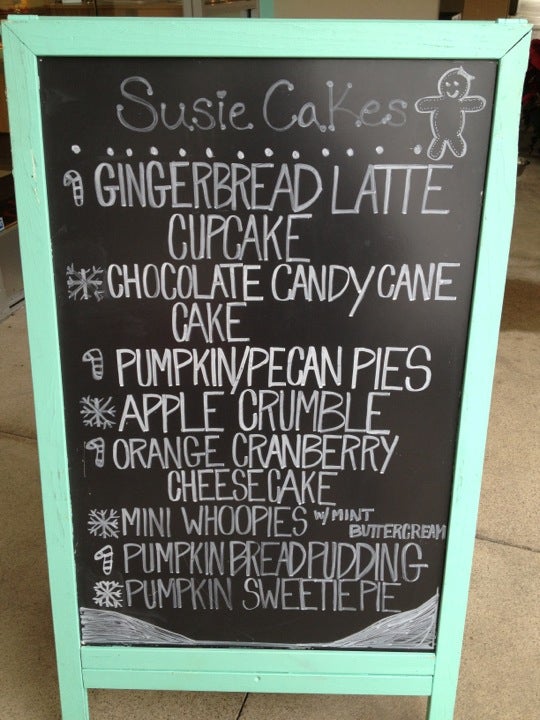 Susie Cakes
GINGERBREAD LATTE
CUPCAKE
CHOCOLATE CANDY CANE
CAKE
PUMPKIN/PECAN PIES
APPLE CRUMBLE
ORANGE CRANBERRY
CHEESECAKE
MINI WHOOPIES W/MINT
BUTTERCREAM
PUMPKIN BREAD PUDDING
PUMPKIN SWEETIE PIE